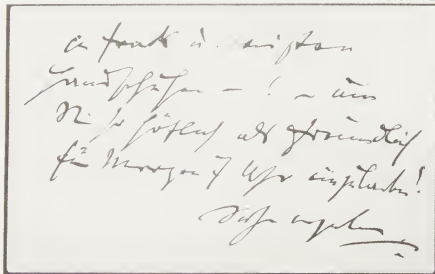 in Frack u. weißen
Handschuhen – ! – um
Sie so höflich als freundlich
für Morgen 7 Uhr einzuladen!